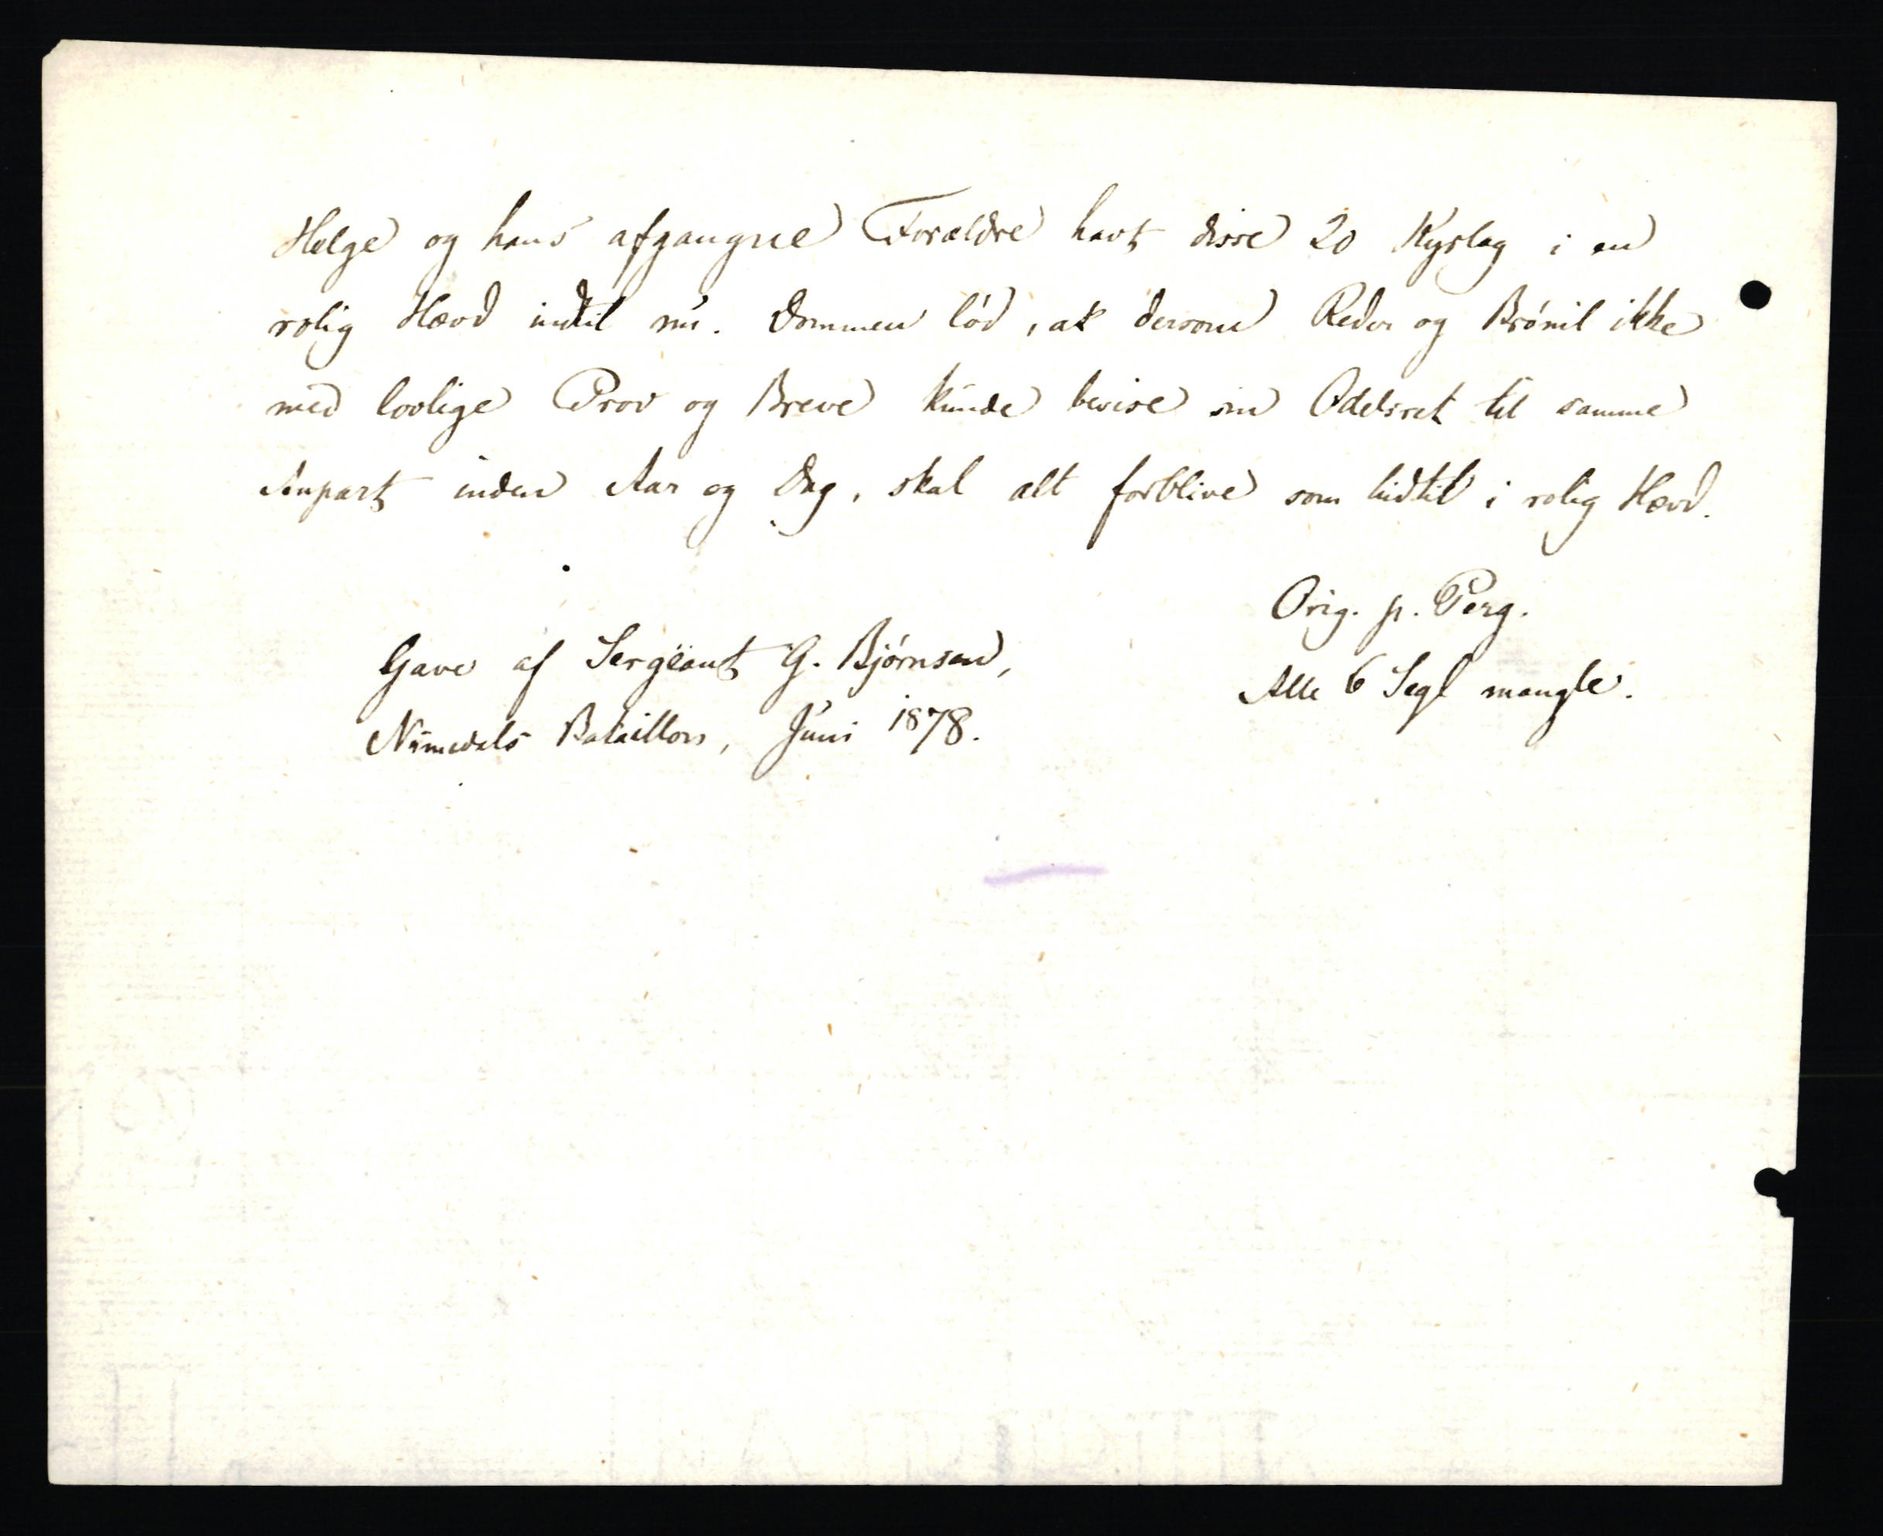 Helge og hans afgangne Forældre havt disse 20 Kyrlag i en
rolig Hævd indtil nu. Dommen lød, at dersom Reder og Brönil ikke
med lovlige Prov og Breve kunde bevise sin Odelsret til samme
Anpart inden Aar og Dag, skal alt forblive som hidtil i rolig Hævd.
Orig. p. Perg.
Alle 6 Segl mangle.
Gave af Sergeant G. Bjørnsen,
Numedals Bataillon, Juni 1878.